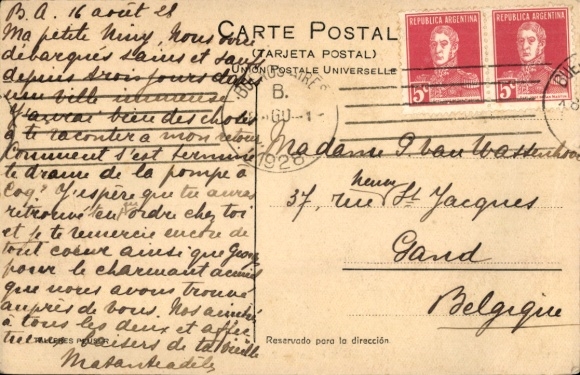 B. A. 16 août 28
Ma petite Nény, Nous voici
débarqués sains et saufs
depuis trois jours dans
une ville immense
J'aurai bien des choses
à te raconter à mon retour
Comment s'est terminé
le drame de la pompe à
Coq? J'espère que tu auras
retrouvé tout en ordre chez toi
et je te remercie encore de
tout coeur ainsi que Georges
pour le charmant accueil
que nous avons trouvé
auprès de vous. Nos amitiés
à tous les deux et affec
baisers de ta vieille
CARTE POSTAL
(TARJETA POSTAL)
UNION POSTALE UNIVERSELLE
REPUBLICA ARGENTINA
5c
REPUBLICA ARGENTINA
5c
BUENOS AIRES
B.
1928
Madame P. van Wassenhove
37, rue neuve St Jacques
Gand
Belgique
TALLERES PEUSER
Reservado para la dirección